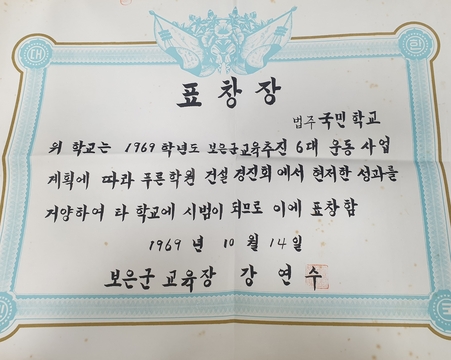 대
한
표창장
법주 국민학교
위 학교는 1969 학년도 보은군교육추진 6대 운동 사업
계획에 따라 푸른학원 건설 경진회에서 현저한 성과를
거양하여 타 학교에 시범이 되므로 이에 표창함
1969 년 10 월 14일
보은군 교육장 강 연 수